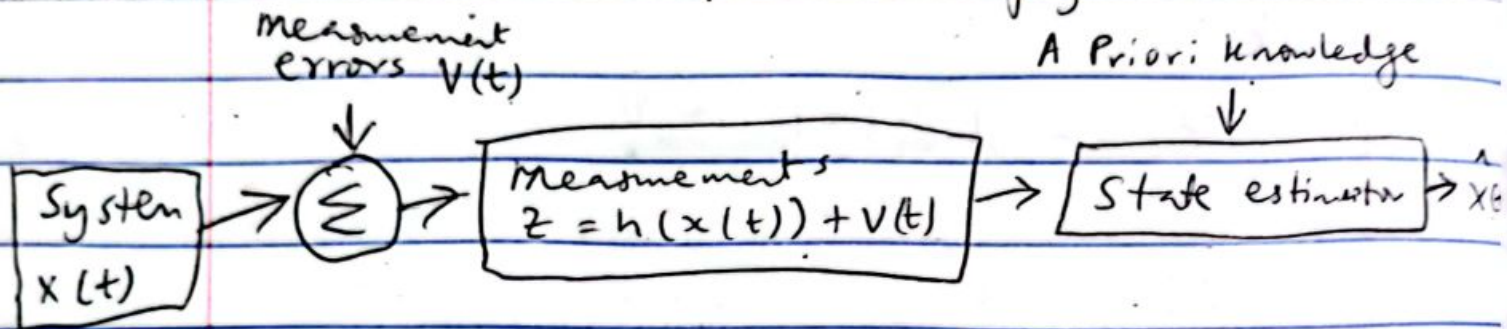 Measurement
errors V(t)
A Priori knowledge
System
x(t)
Σ
Measurements
z = h(x(t)) + v(t)
State estimator